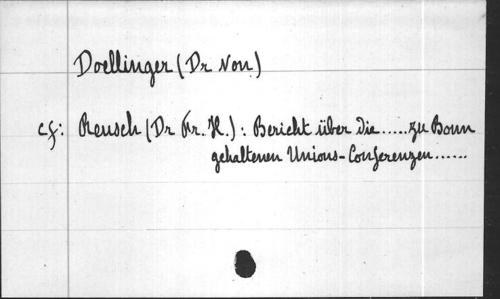 Doellinger (Dr von)
cf: Reusch (Dr Fr. H.) : Bericht über die ..... zu Bonn
gehaltenen Unions-Conferenzen ......